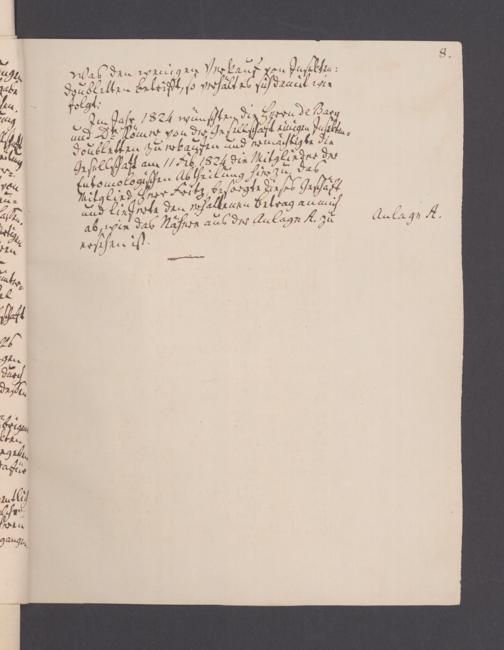 8.
Was den wenigen Verkauf von Insekten:
doubletten betrifft, so verhält es sich damit wie
folgt:
Im Jahr 1824 wünschten die Herren de Bary
und Dr. Römer von der Gesellschaft einigen Insekten=
doubletten zu verkaufen und ermächtigte die
Gesellschaft am 11 Feb 1824 die Mitglieder der
Entomologischen Abtheilung hierzu das
Mitglied Herr Fritz besorgte dieses Geschäft
und lieferte den erhaltenen betrag an mich
ab, wie das Nähere aus der Anlage A. zu
ersehen ist.
Anlage A.